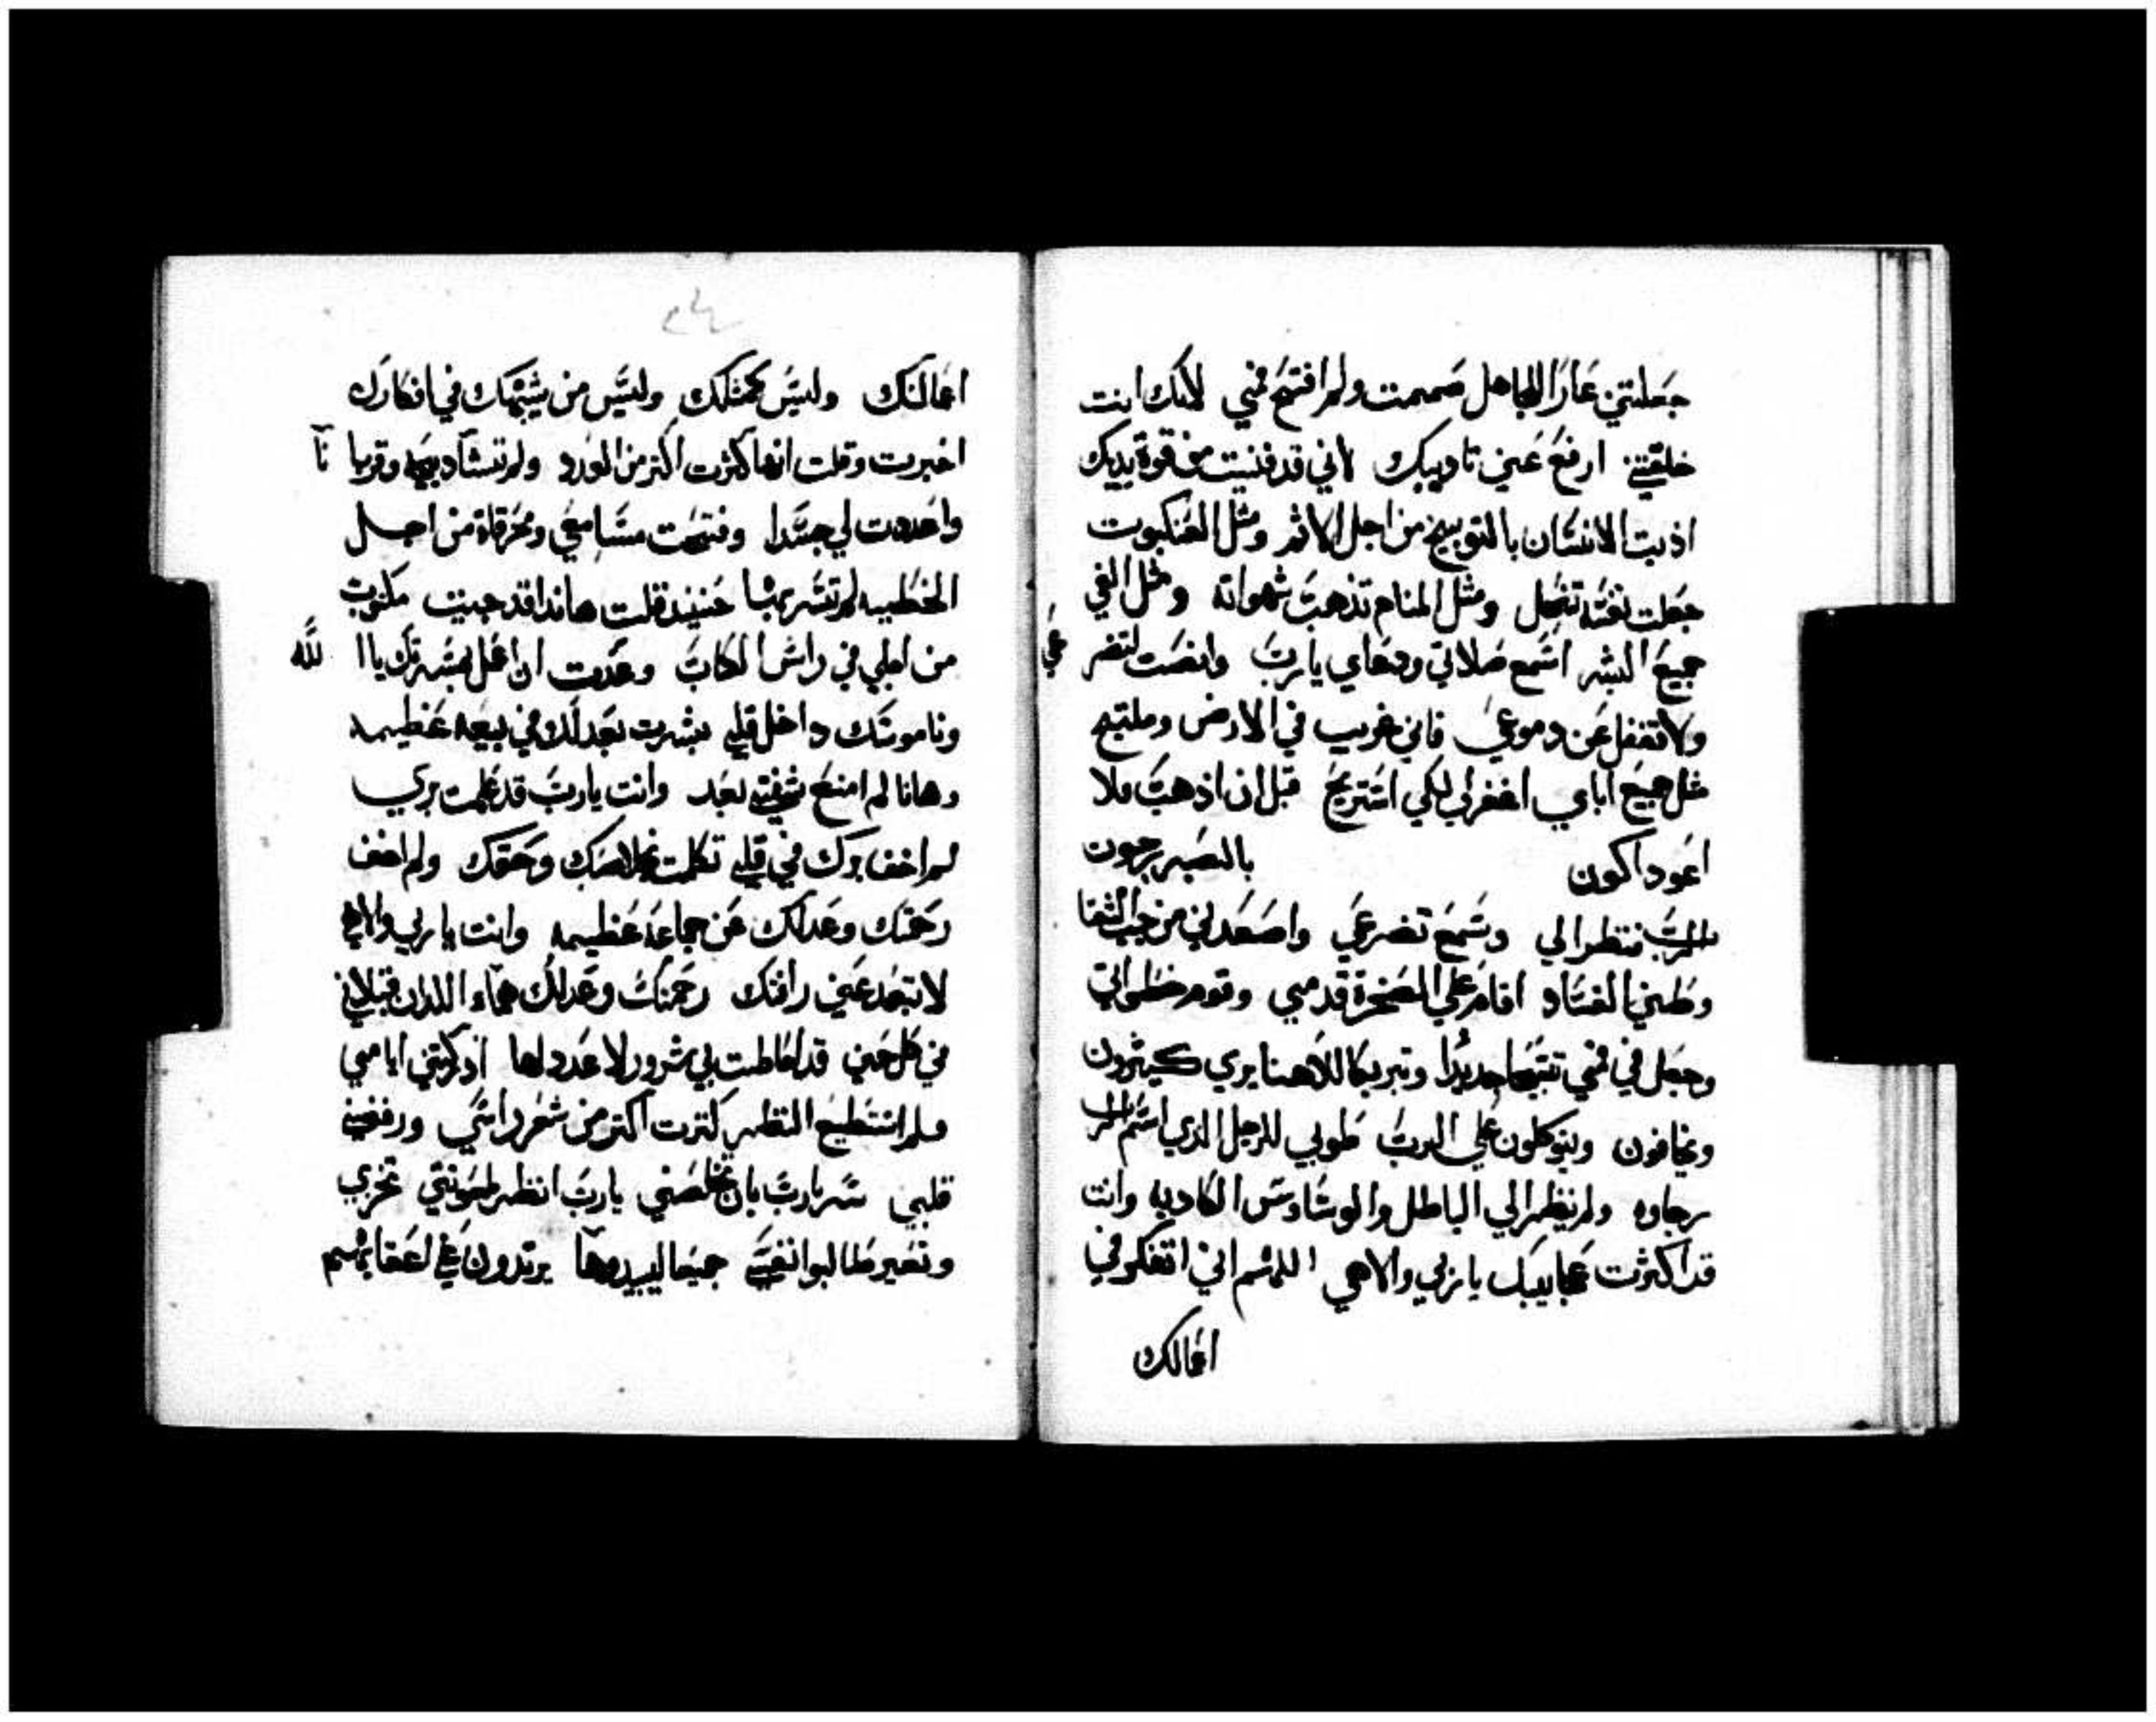 جعلتني عارا للجاهل صممت ولم افتح فمي لانك انت
خلقتني ارفع عني تاديبك لاني قد فنيت من قوة يديك
اذبت الانسان بالتوبيخ من اجل الاثم ومثل العنكبوت
جعلت نفسه تنحل ومثل المنام تذهب شهواته ومثل الفي
جميع البشر اسمع صلاتي ودعاي يا رب وانصت لتضر عي
ولا تغفل عن دموعي فاني غريب في الارض وملتجي
مثل جميع اباي اغفر لي لكي استريح قبل ان اذهب ولا
اعود اكون بالصبر رجوت
الرب فنظر الي وسمع تضرعي واصعدني من جب الشقا
وطين الفساد اقام علي الصخرة قدمي وقوم خطواتي
وجعل في فمي تسبيحا جديدا وتبريكا لالاهنا يري كثيرون
ويخافون ويتوكلون علي الرب طوبي للرجل الذي اسم الرب
رجاوه ولم ينظر الي الباطل والوساوس الكاذبه وانت
قد اكثرت عجايبك يا ربي والاهي اللهم اني اتفكر في
اعمالك
اعمالك وليس كمثلك وليس من يشبهك في افكارك
اخبرت وقلت انها كثرت اكثر من العدد ولم تشا دبيحه وقربا نا
واعددت لي جسدا وفتحت مسامعي ومحرقاة من اجل
الخطييه لم تسر بها حينيد قلت هاندا قد جيت مكتوب
من اجلي في راس الكتاب وعدت ان اعمل بمسرتك يا ا لله
وناموسك داخل قلبي بشرت بعدلك في بيعه عظيمه
وهانا لم امنع شفتي بعد وانت يا رب قد علمت بري
لم اخف برك في قلبي تكلمت بخلاصك وحقك ولم اخف
رحمتك وعدلك عن جماعه عظيمه وانت يا ربي والاهي
لا تبعد عني رافتك رحمتك وعدلك هما اللذان قبلاني
في كل حين قد احاطت بي شرور لا عدد لها ادركتني ايامي
ولم استطيع النظر كثرت اكثر من شعر راسي ورفضني
قلبي سر يا رب بان تخلصني يا رب انظر لمعونتي تخزي
وتعير طالبوا نفسي جميعا ليبيدوها يرتدون علي اعقابهم